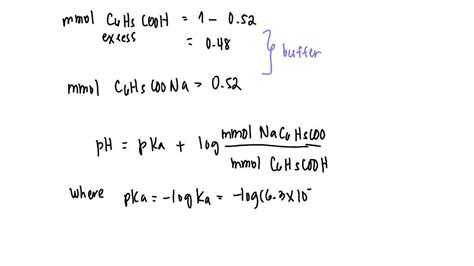 mmol C6H5COOH = 1 - 0.52
excess = 0.48
buffer
mmol C6H5COONa = 0.52
pH = pKa + log mmol NaC6H5COO
mmol C6H5COOH
where pKa = -log Ka = -log(6.3x10-